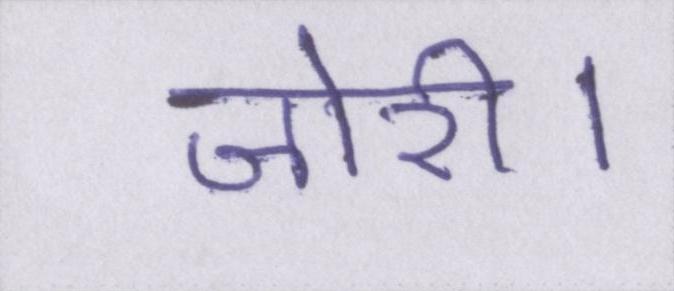 जोरी।